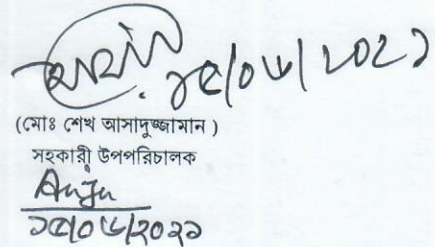 ১৫/০৬/২০২১
(মোঃ শেখ আসাদুজ্জামান )
সহকারী উপপরিচালক
Anju
১৫/০৬/২০২১